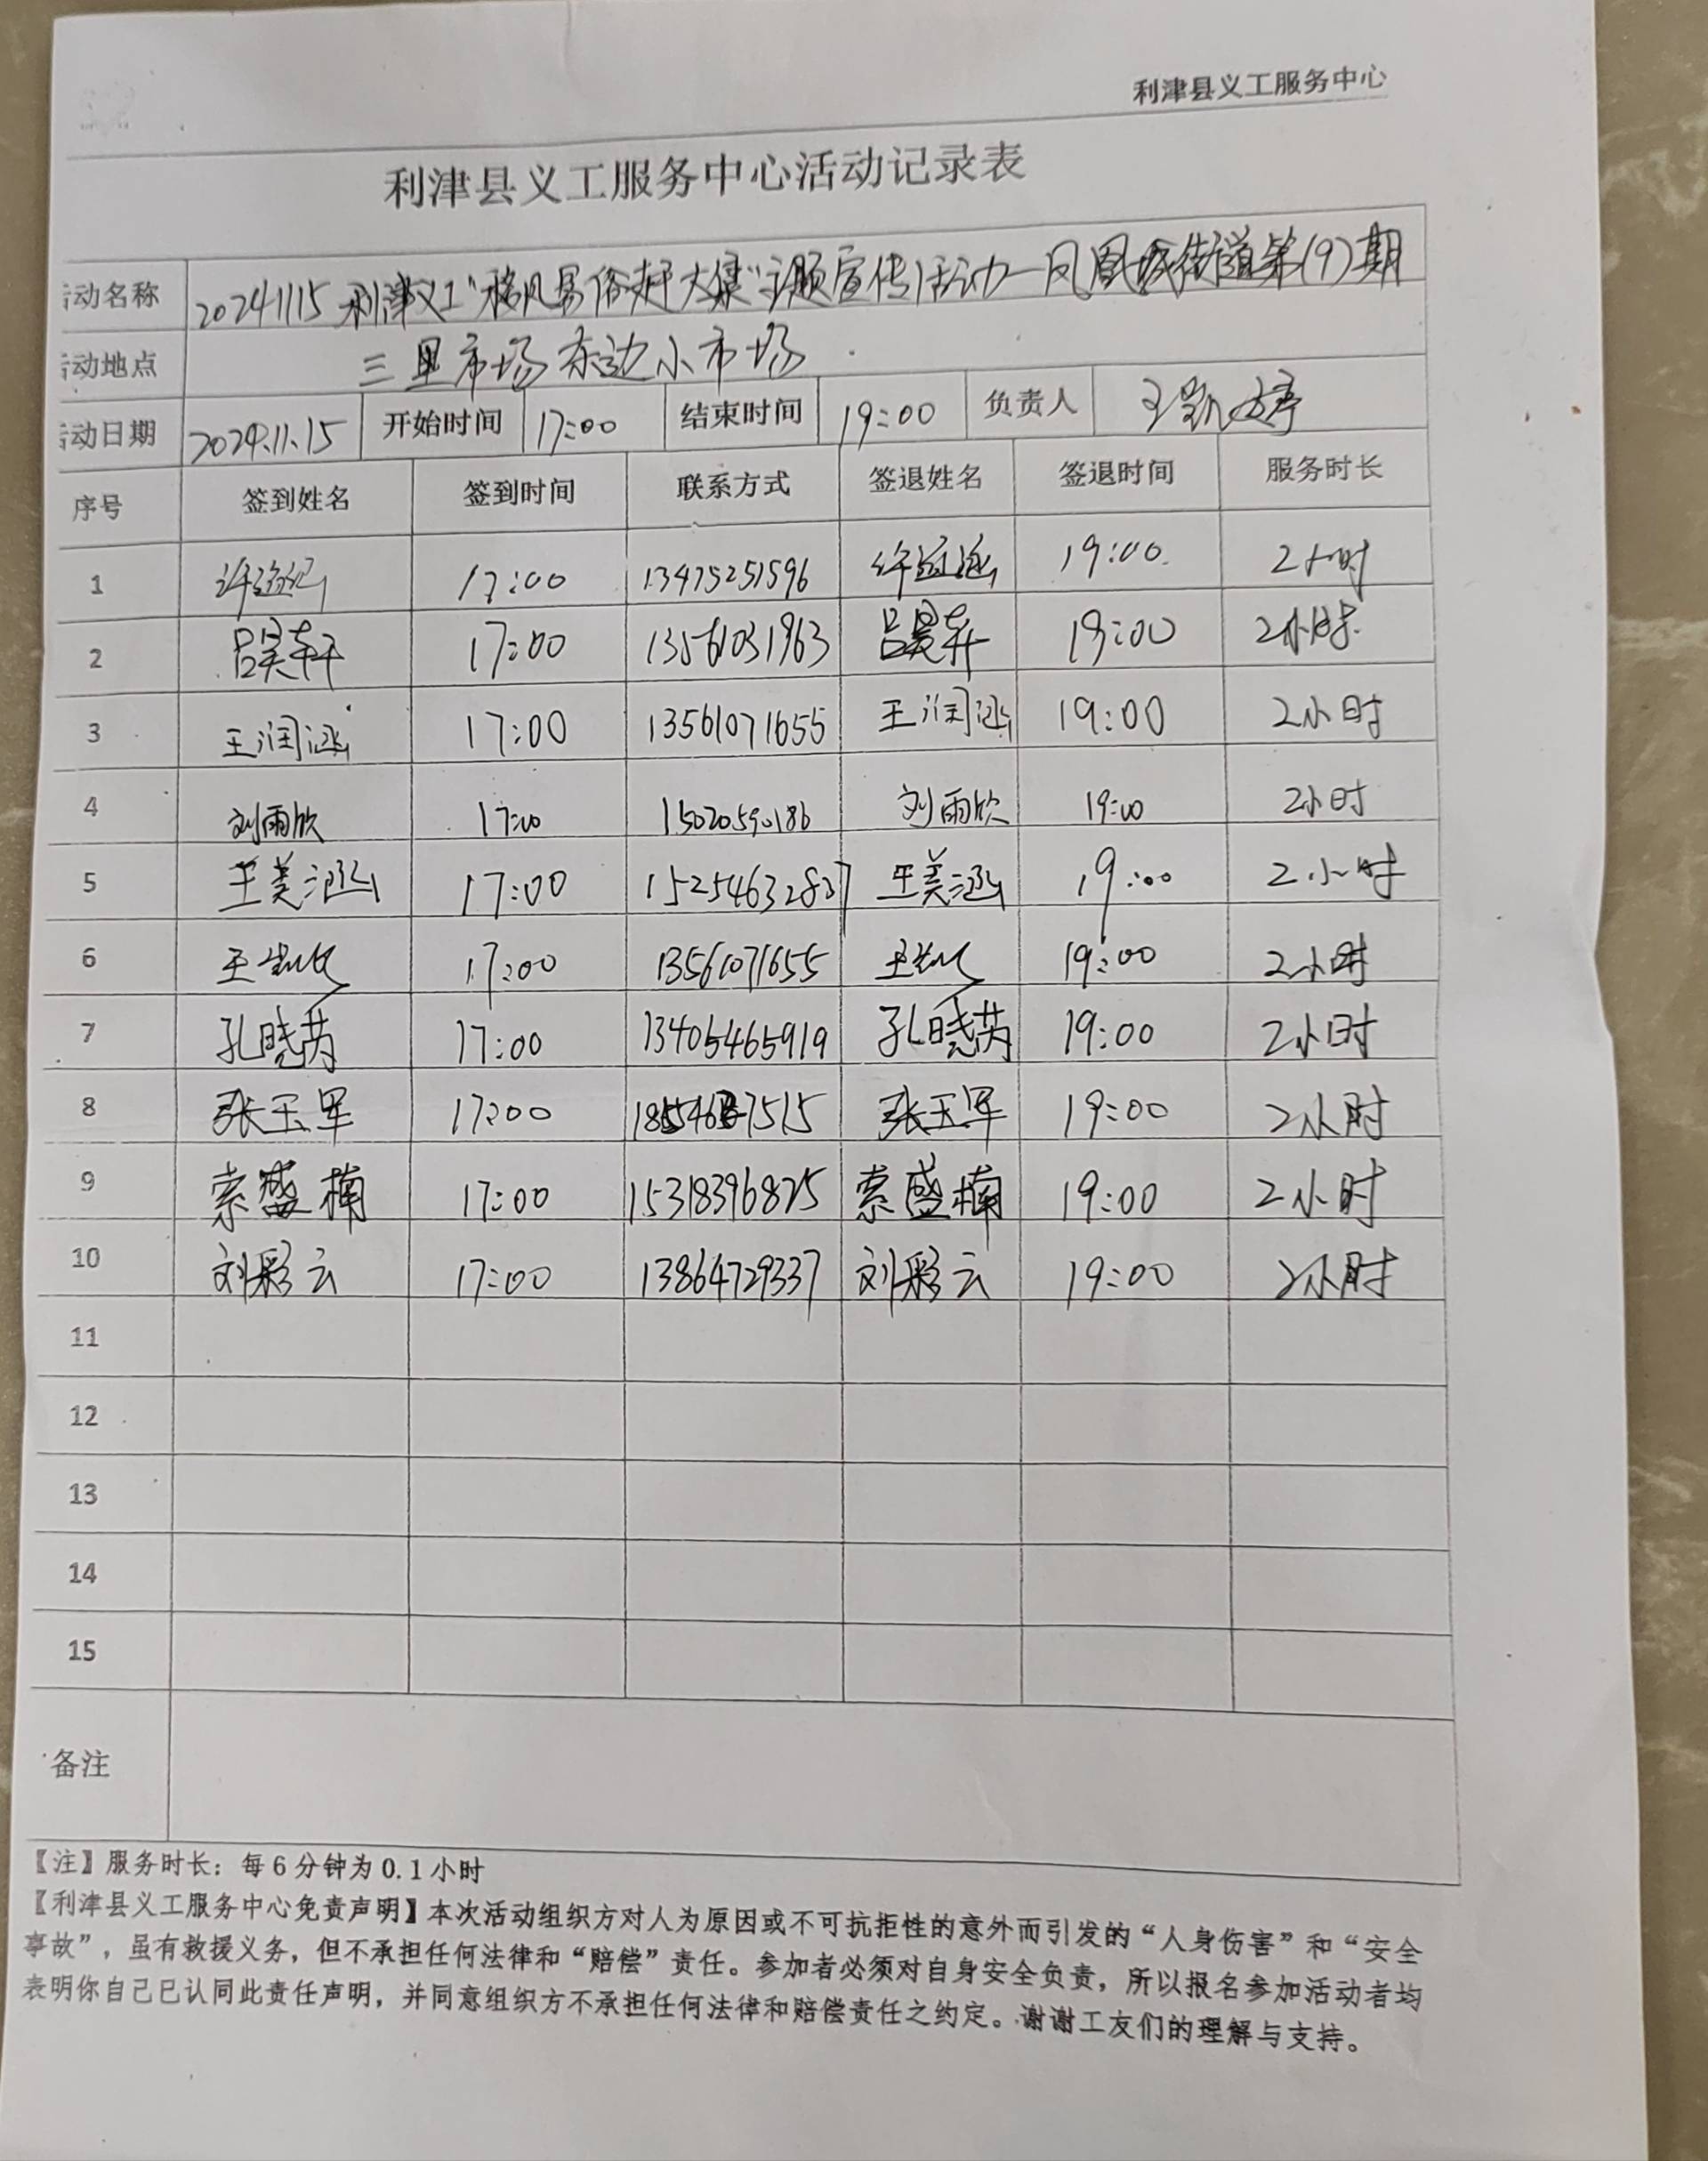 利津县义工服务中心
利津县义工服务中心活动记录表
活动名称 20241115 利津义工"移风易俗赶大集"主题宣传活动—凤凰城街道第(9)期
活动地点 三里市场东边小市场
活动日期 2024.11.15 开始时间 17:00 结束时间 19:00 负责人 王凯婷
序号 签到姓名 签到时间 联系方式 签退姓名 签退时间 服务时长
1 17:00 13475251596 19:00 2小时
2 吕昊轩 17:00 13561031963 吕昊轩 19:00 2小时
3 王润涵 17:00 13561071655 王润涵 19:00 2小时
4 刘雨欣 17:00 15020590186 刘雨欣 19:00 2小时
5 王美涵 17:00 15254632837 王美涵 19:00 2小时
6 17:00 13561071655 19:00 2小时
7 孔晓芮 17:00 13405465919 孔晓芮 19:00 2小时
8 张玉军 17:00 张玉军 19:00 2小时
9 索盛楠 17:00 15318396825 索盛楠 19:00 2小时
10 刘彩云 17:00 13864729337 刘彩云 19:00 2小时
11
12
13
14
15
备注
【注】服务时长：每6分钟为0.1小时
【利津县义工服务中心免责声明】本次活动组织方对人为原因或不可抗拒性的意外而引发的“人身伤害”和“安全
事故”，虽有救援义务，但不承担任何法律和“赔偿”责任。参加者必须对自身安全负责，所以报名参加活动者均
表明你自己已认同此责任声明，并同意组织方不承担任何法律和赔偿责任之约定。谢谢工友们的理解与支持。